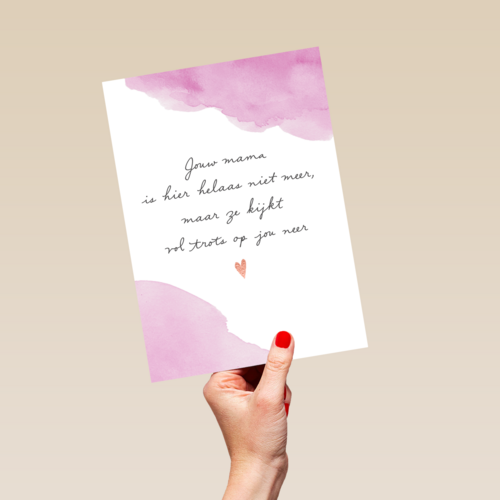 Jouw mama
is hier helaas niet meer,
maar ze kijkt
vol trots op jou neer